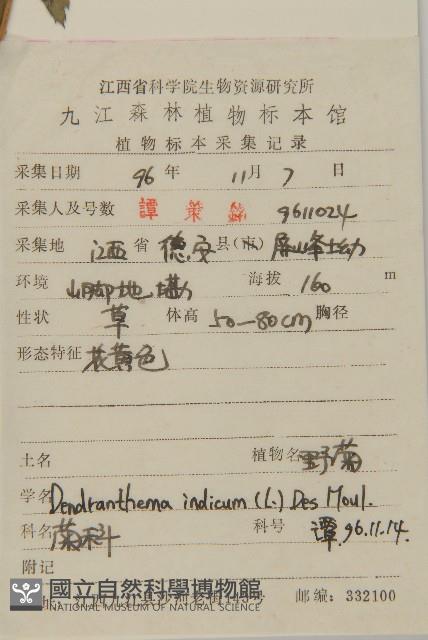 江西省科学院生物资源研究所
九江森林植物标本馆
植物标本采集记录
采集日期 96 年 11 月 7 日
采集人及号数 譚策銘 9611024
采集地 江西 省 德安 县(市) 屏峰
环境 山脚地塝 海拔 160 m
性状 草 体高 50—80cm 胸径
形态特征 花黄色
土名 植物名 野菊
学名 Dendranthema indicum (L.) Des Moul.
科名 菊科 科号 譚.96.11.14.
附记
國立自然科學博物館
NATIONAL MUSEUM OF NATURAL SCIENCE
邮编: 332100